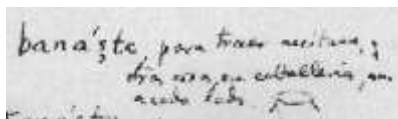 banáṣte, para traer aceituna, y
otra cosa, en caballería, un
a cada lado